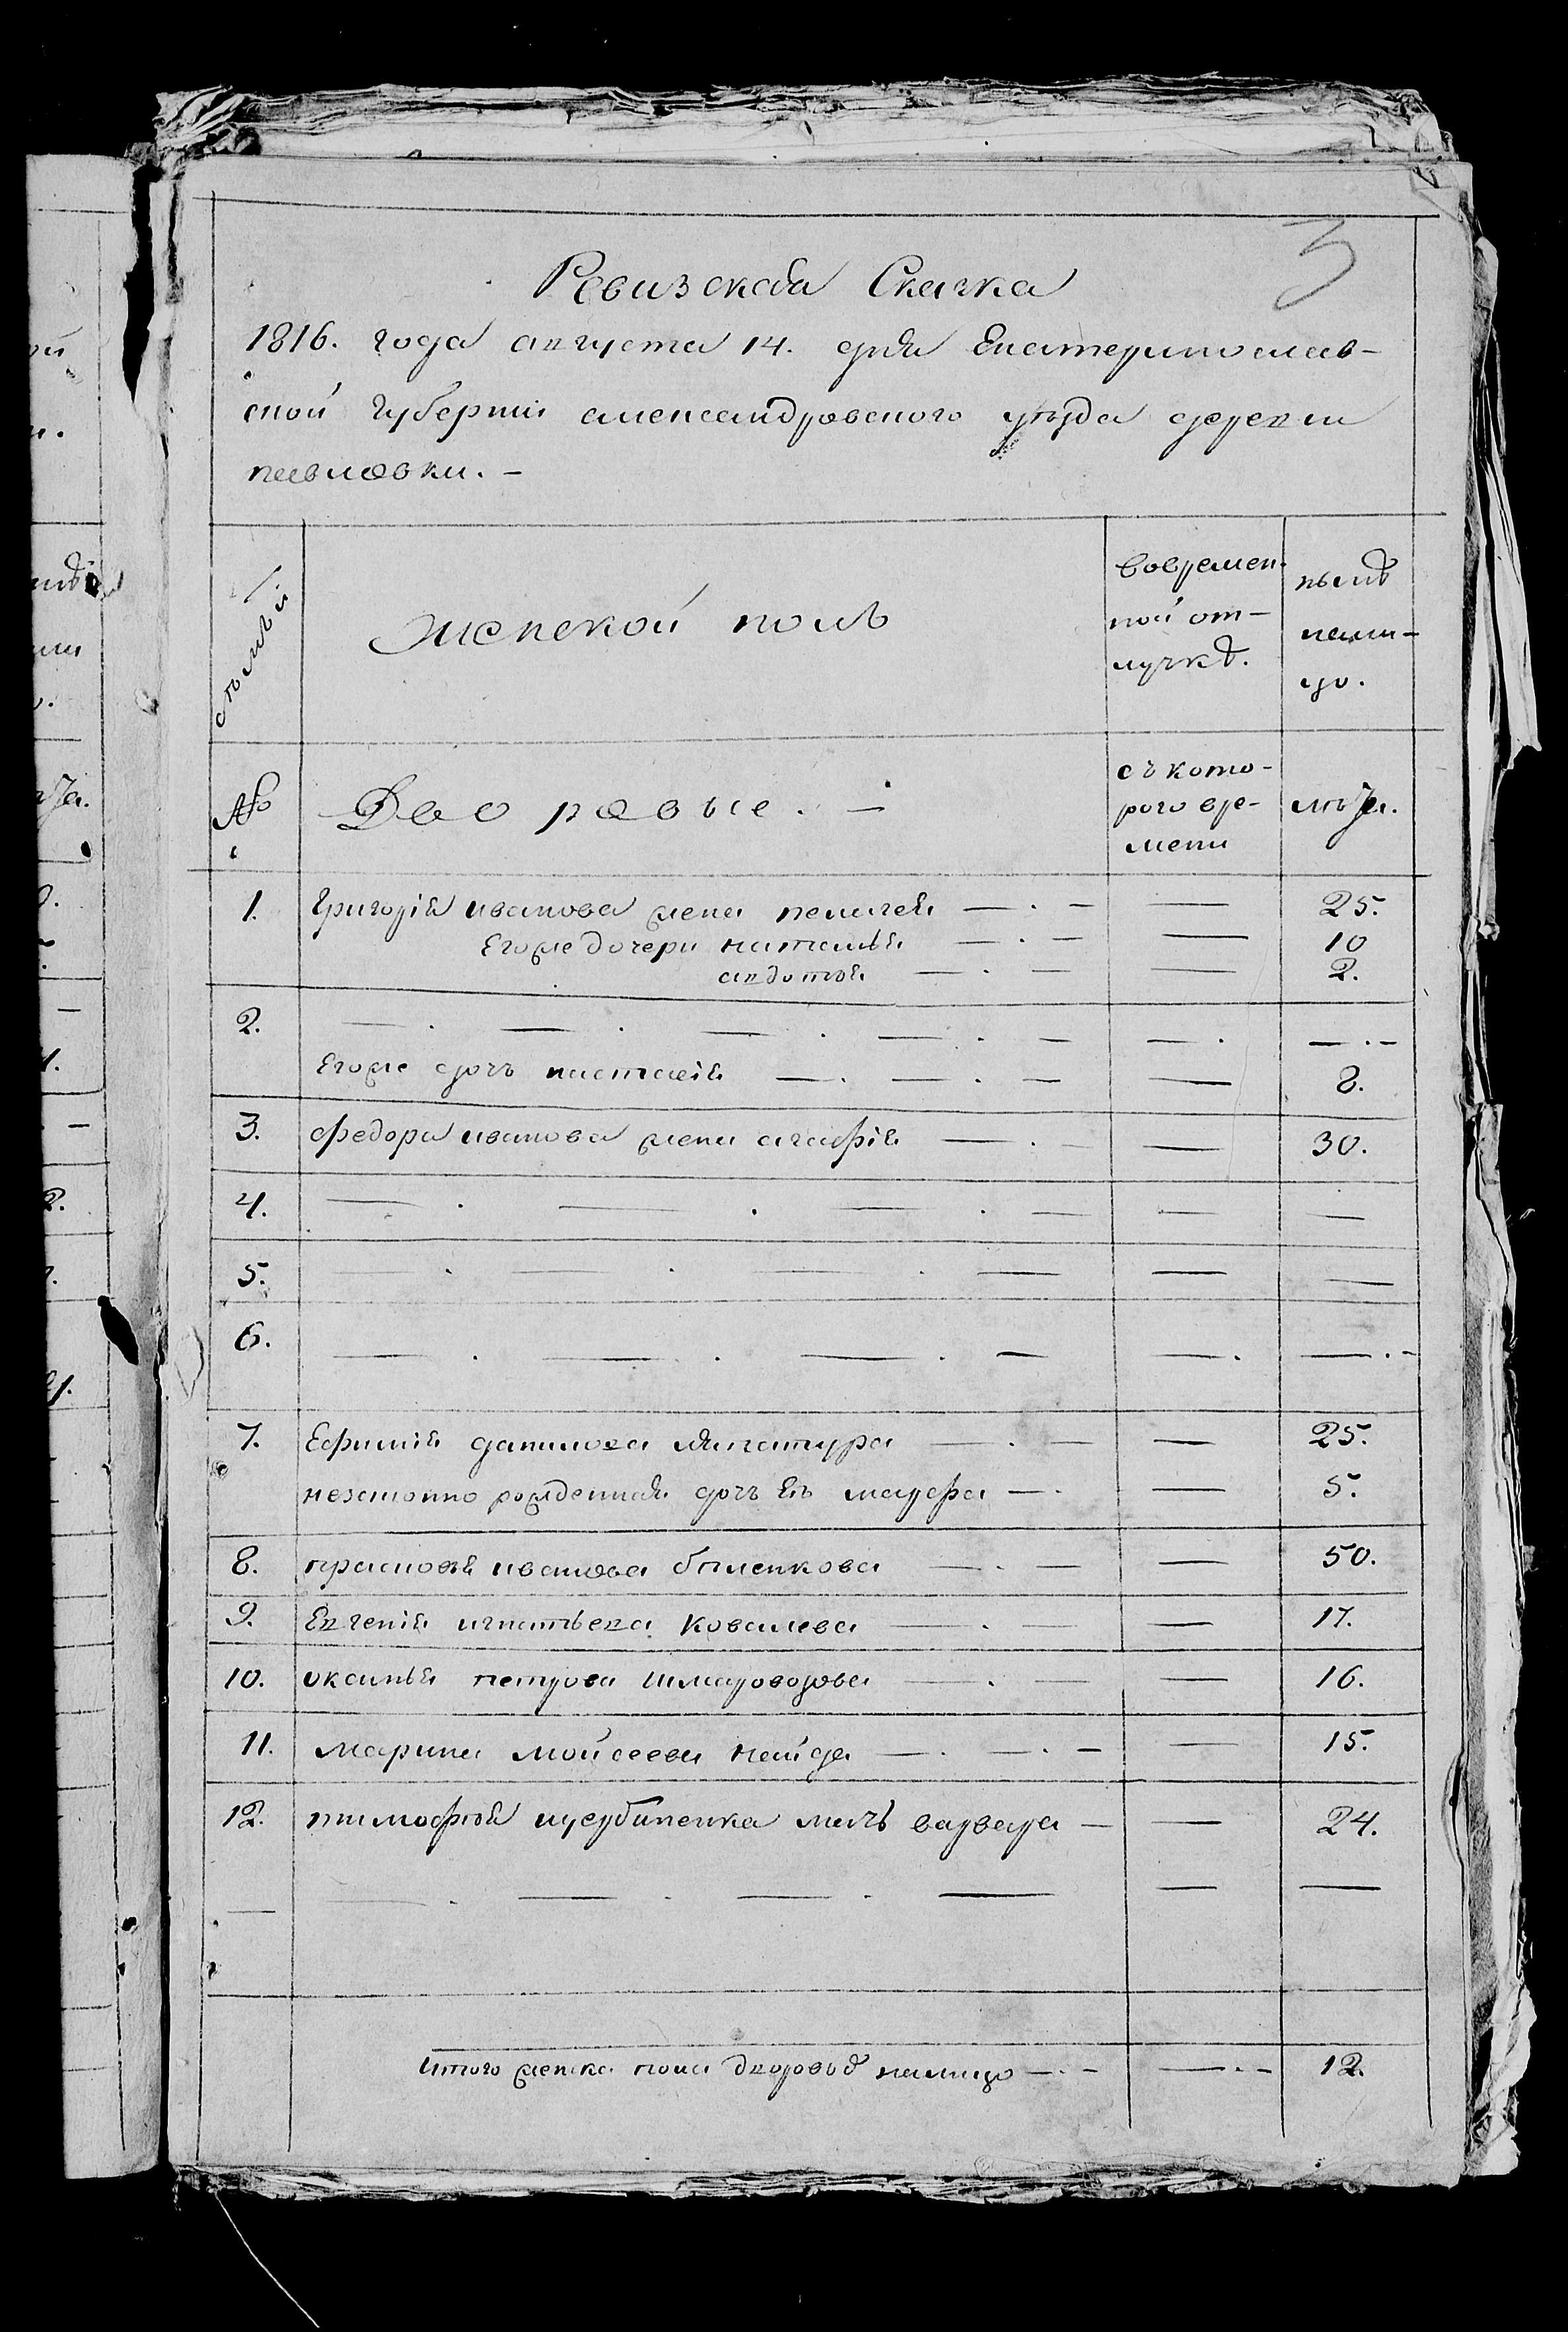 3
Ревизская Скаска
1816. года августа 14. дня Екатеринослав-
ской губернии александровского уезда деревни
павловки. —
семьи
женской полъ
вовремен-
ной от-
лучкѣ.
нынѣ
на лицо.
№
Дворовые. —
съ кото-
рого вре-
мени
лѣта.
1. Григорiя иванова жена пелагея — . — — 25.
Егоже дочери наталья — . — — 10
авдотья — . — — 2.
2. — . — . — . — . — — . — . —
Егоже дочь настасiя — . — . — — 8.
3. федора иванова жена агафiя — . — — 30.
4. — . — . — . — — —
5. — . — . — . — — —
6. — . — . — . — — . — . —
7. Ефимiя данилова — . — — 25.
незаконно рожденная дочь Ея мавра — . — 5.
8. прасковя иванова беленкова — . — — 50.
9. Евгенiя игнатьева Ковалева — . — — 17.
10. оксинья петрова шмаровозова — . — — 16.
11. марина мойсеева найда — . — . — — 15.
12. тимофея мать варвара — — 24.
— — . — . — . — — —
Итого женска пола дворовыхъ налицо — . — — . — 12.